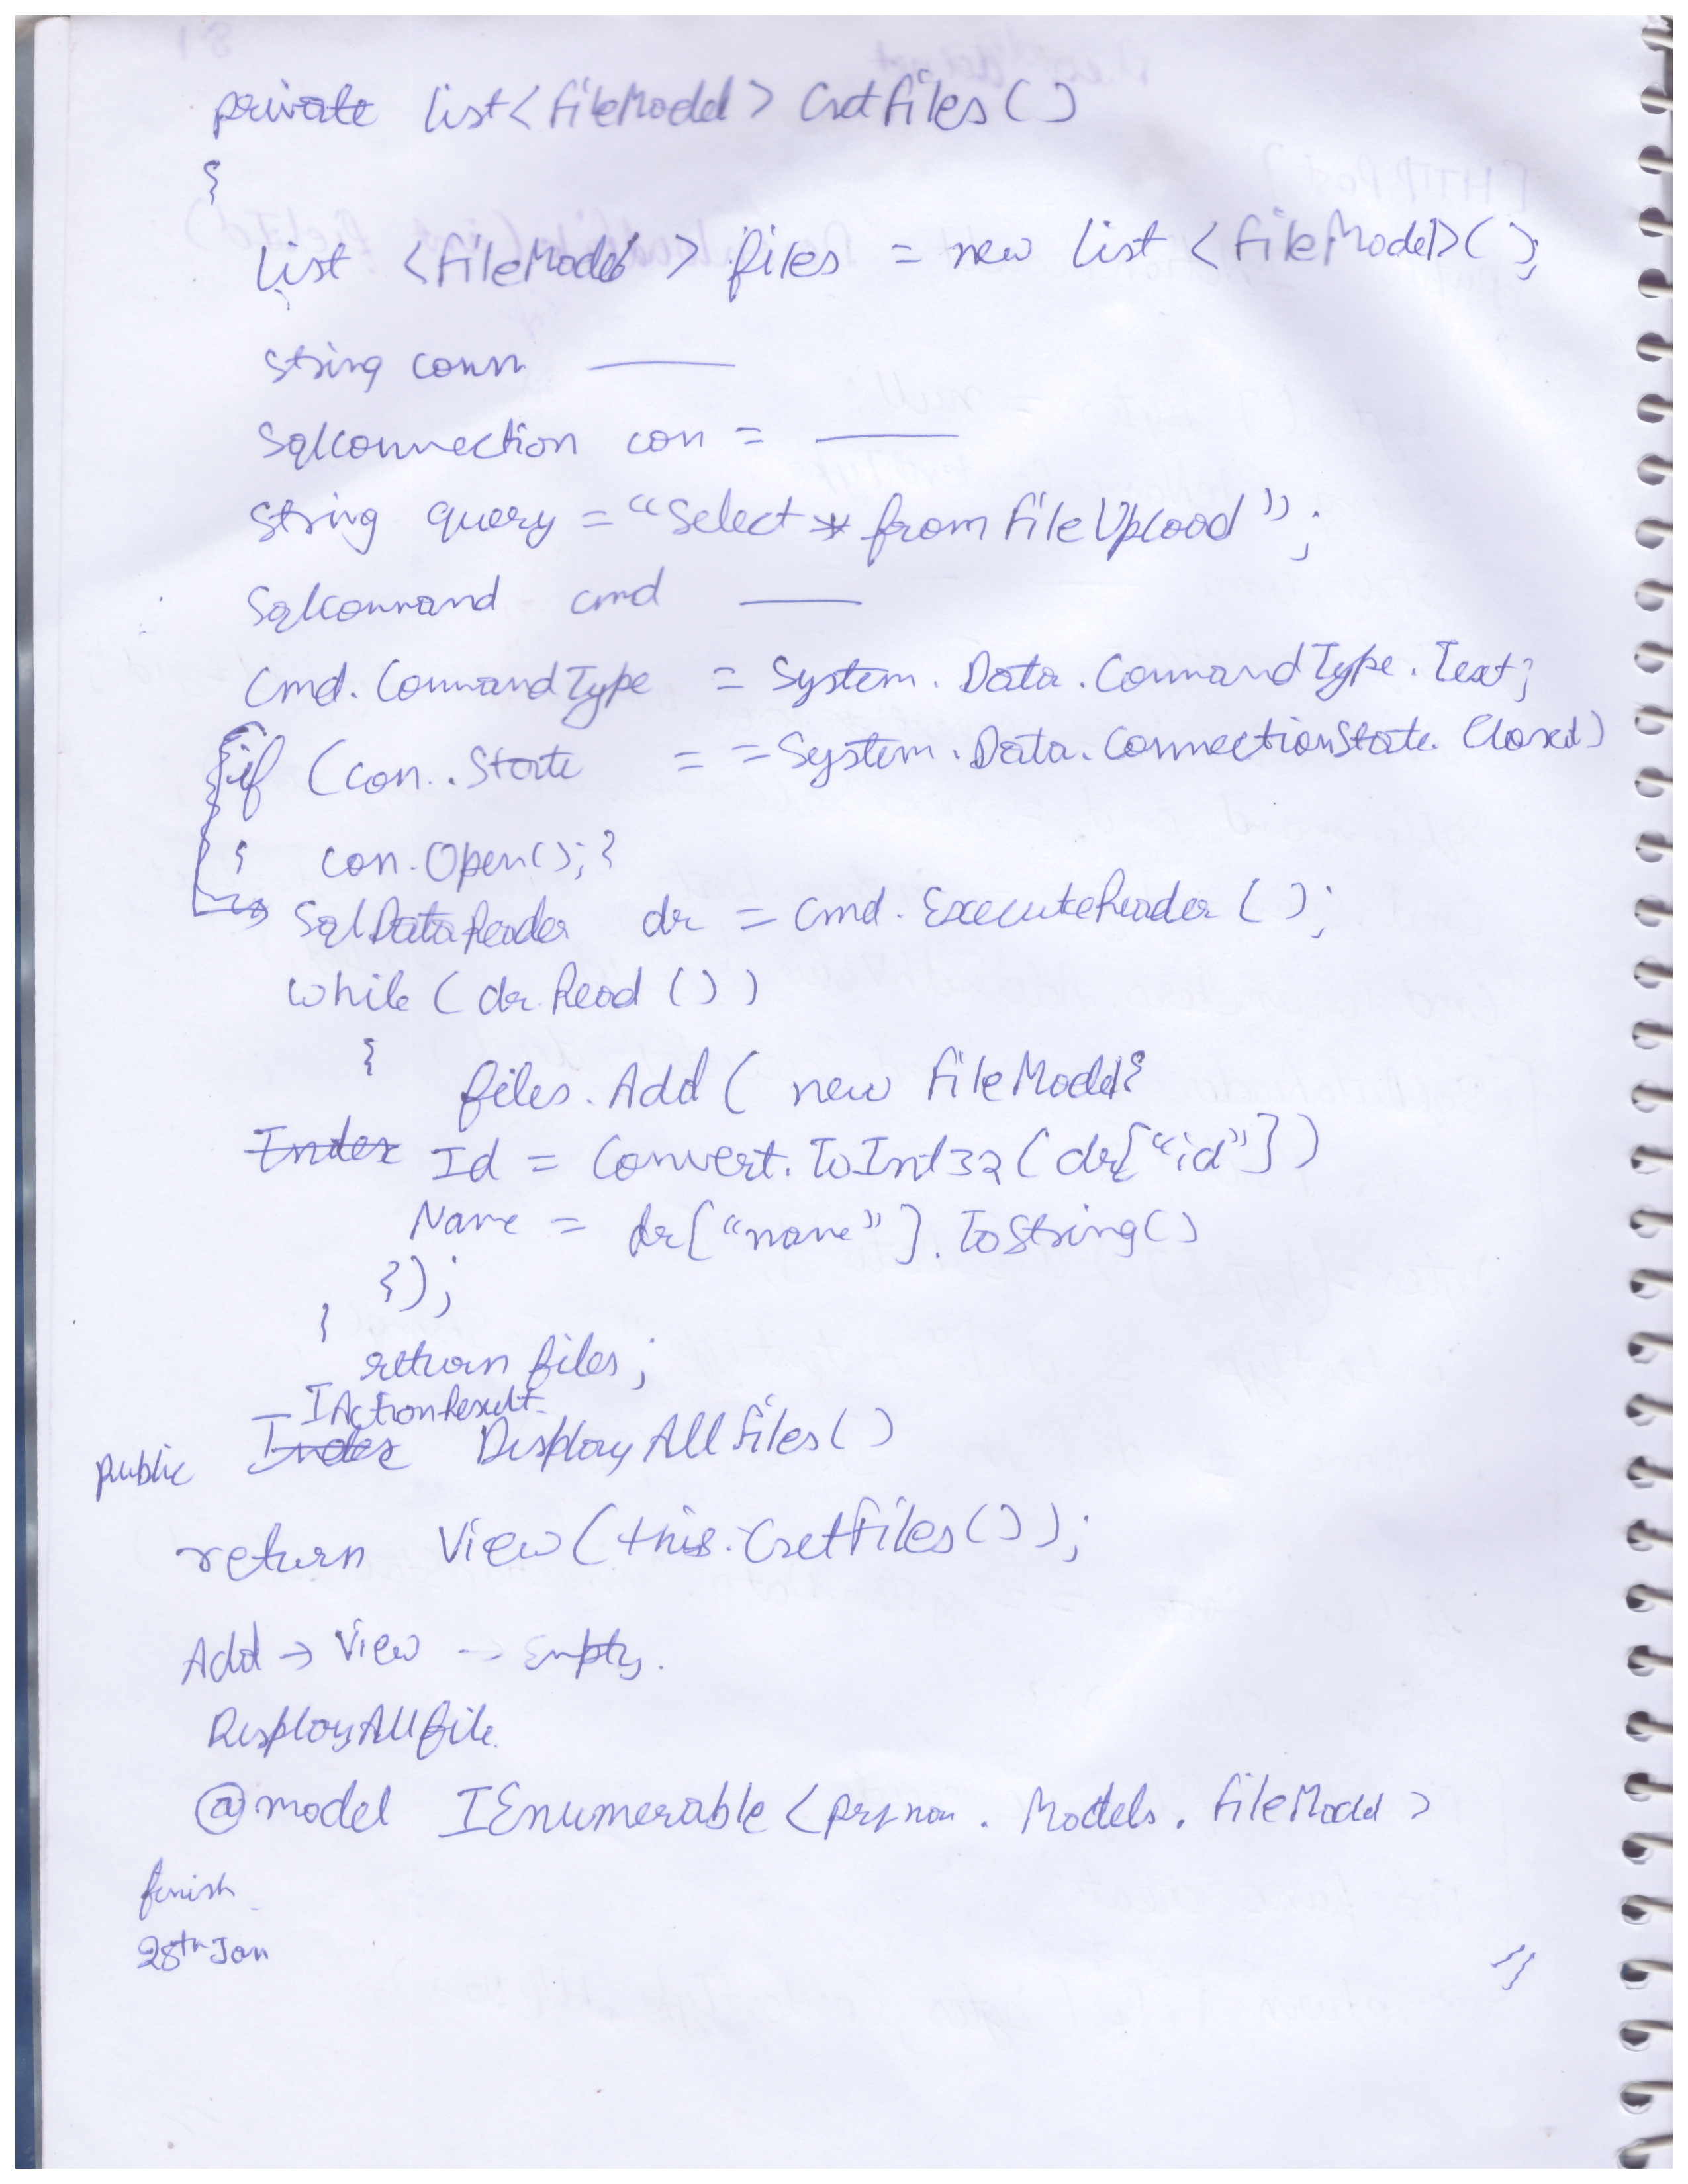 private List<FileModel> GetFiles()
{
List <FileModel> files = new List <FileModel>();
string conn ———
SqlConnection con = ———
String query = "Select * from FileUpload";
SqlCommand cmd ———
Cmd.CommandType = System.Data.CommandType.Text;
if (con.State == System.Data.ConnectionState.Closed)
{ con.Open();}
SqlDataReader dr = cmd.ExecuteReader();
while (dr.Read())
{ files.Add( new FileModel{
Index Id = Convert.ToInt32(dr["id"])
Name = dr["name"].ToString()
});
}
return files;
IActionResult
public Index DisplayAllFiles()
return View(this.GetFiles());
Add → View → Empty.
DisplayAllfile
@model IEnumerable <prjnam.Models.FileModel>
finish
28th Jan